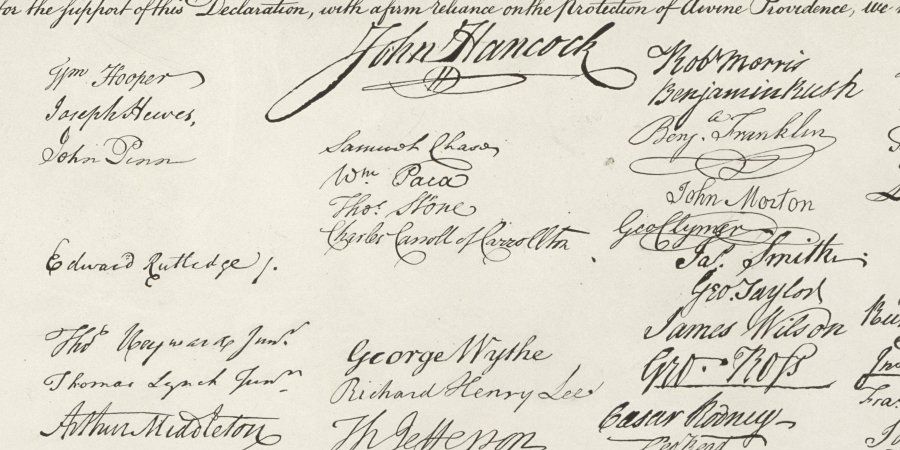 for the support of this Declaration, with a firm reliance on the Protection of divine Providence, we
John Hancock
Wm Hooper
Joseph Hewes,
John Penn
Edward Rutledge /.
Thos Heyward Junr.
Thomas Lynch Junr.
Arthur Middleton
Samuel Chase
Wm. Paca
Thos. Stone
Charles Carroll of Carrollton
George Wythe
Richard Henry Lee
Th Jefferson
Robt Morris
Benjamin Rush
Benja. Franklin
John Morton
Geo Clymer
Jas. Smith
Geo. Taylor
James Wilson
Geo. Ross
Caesar Rodney
Geo Read